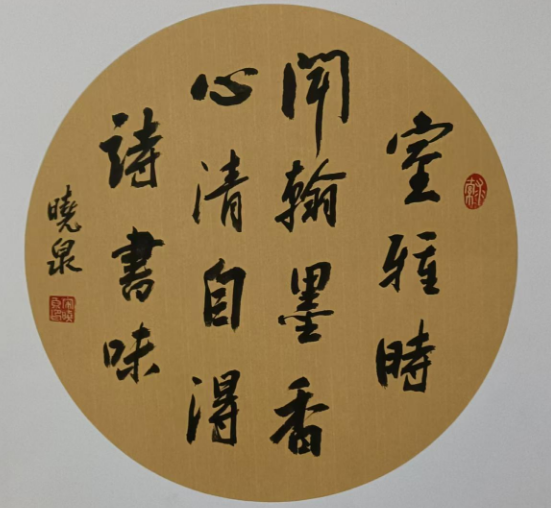 堂雅時
聞翰墨香
心清自得
詩書味
曉泉